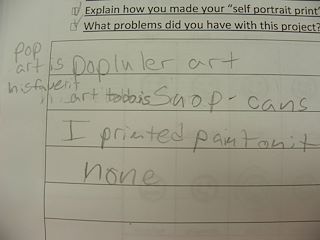 Explain how you made your "self portrait print"
What problems did you have with this project?
pop
art is popluler art
his faverit
art Suop-cans
I printed paint on it
none